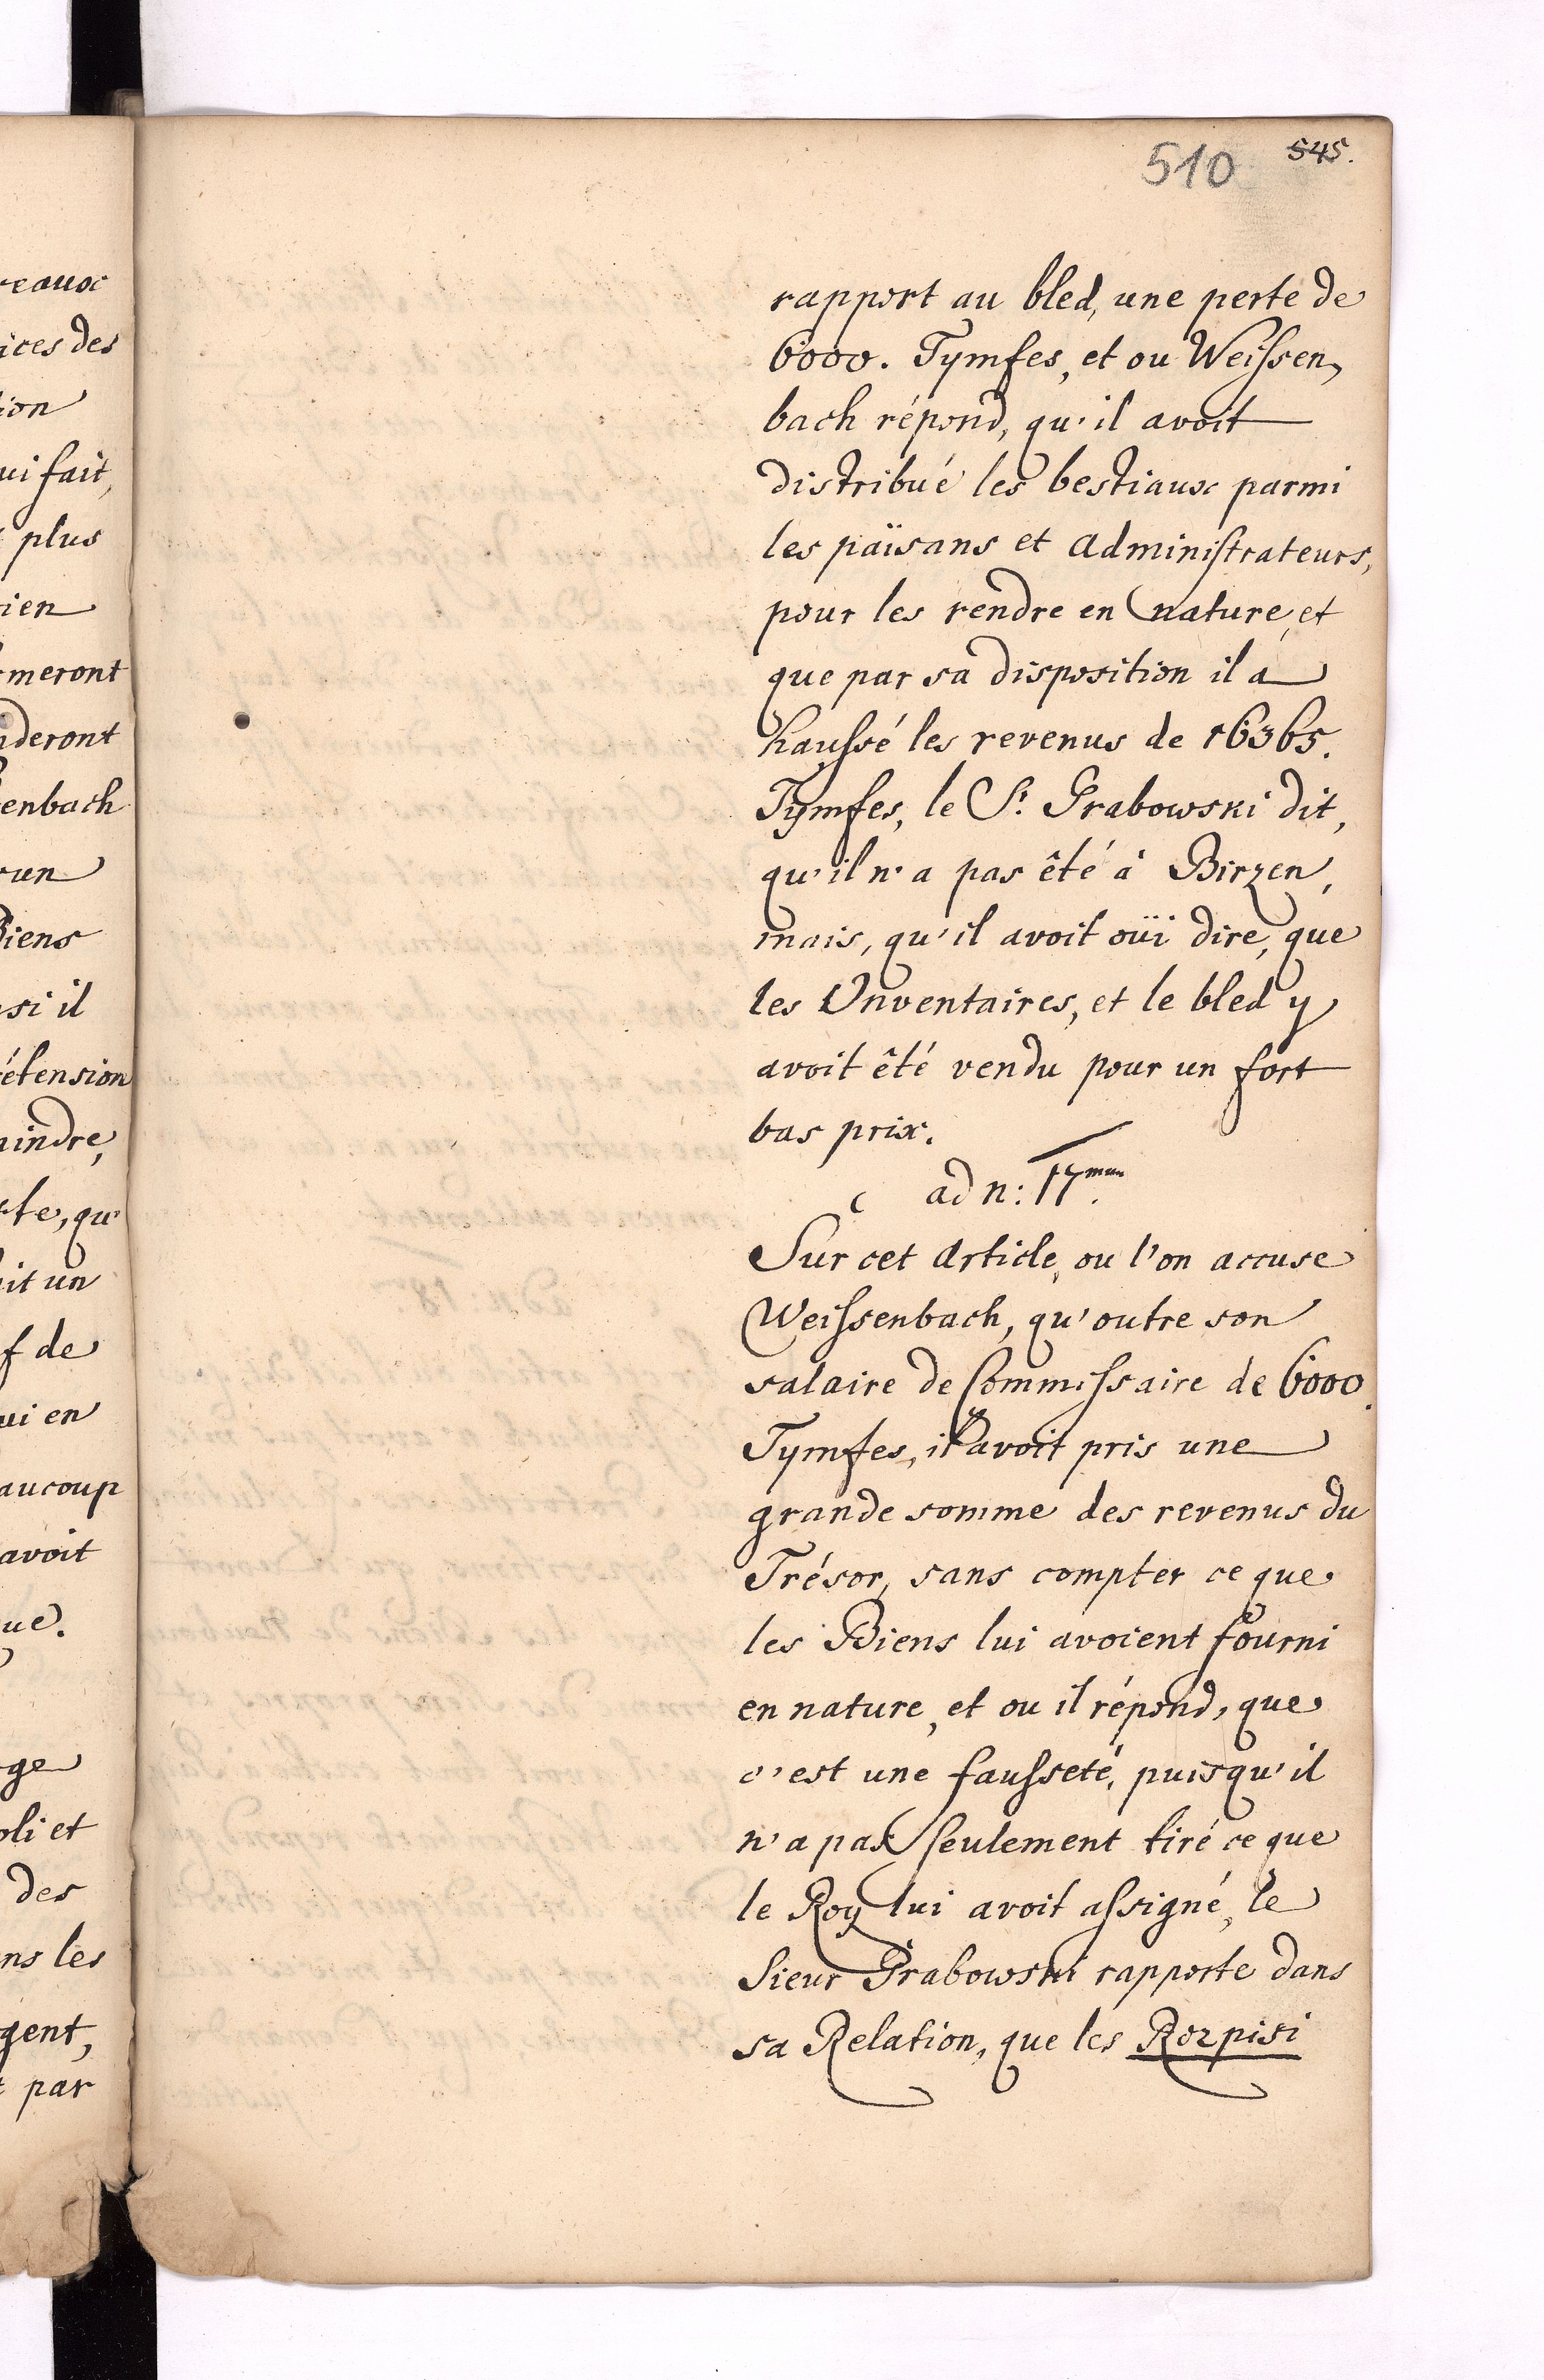 510 545.
rapport au bled, une perte de
6000. Tymfes, et ou Weissen,
bach répond, qu'il avoit
distribué les bestiaux parmi
les païsans et administrateurs,
pour les rendre en nature, et
que par sa disposition il a
haussé les revenus de 16365.
Tymfes, le Sr. Grabowski dit,
qu'il n'a pas êté à Birzen,
mais, qu'il avoit oüi dire, que
les Inventaires, et le bled y
avoit êté vendu pour un fort
bas prix.
ad n: 17mum.
Sur cet article, ou l'on accuse
Weissenbach, qu'outre son
salaire de Commissaire de 6000.
Tymfes, il avoit pris une
grande somme des revenus du
Trésor, sans compter ce que
les Biens lui avoient fourni
en nature, et ou il répond, que
c'est une fausseté, puisqu'il
n'a pas seulement tiré ce que
le Roy lui avoit assigné, le
Sieur Grabowski rapporte dans
sa Relation, que les Rozpisi
reaux
ices des
ion
ui fait,
plus
ien
meront
nderont
enbach
un
Biens
si il
rétension
indre,
te, qu'
it un
f de
ui en
aucoup
avoit
ue.
ge
oli et
des
ns les
gent,
par